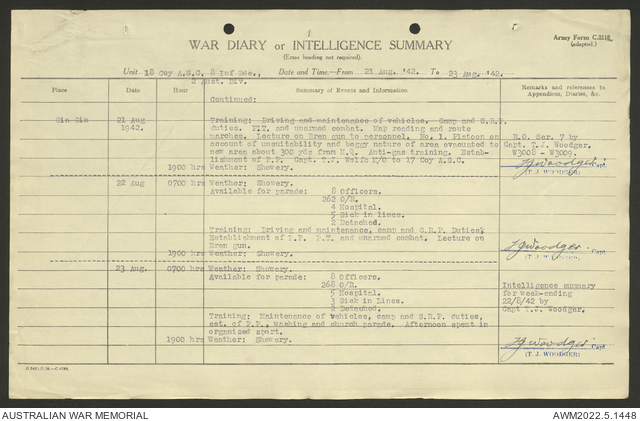 Army Form C.2118.
(adapted.)
WAR DIARY or INTELLIGENCE SUMMARY
(Erase heading not required).
Unit 18 Coy A.S.C. 8 Inf Bde., Date and Time—From 21 Aug. '42. To 23 Aug. '42.
2 Aust. Div.
Place Date Hour Summary of Events and Information Remarks and references to Appendices, Diaries, &c.
Continued:
Gin Gin 21 Aug Training: Driving and maintenance of vehicles, Camp and S.R.P.
1942. duties. P.T. and unarmed combat. Map reading and route
marches. Lecture on Bren gun to personnel. No. 1. Platoon on R.O. Ser. 7 by
account of unsuitability and boggy nature of area evacuated to Capt. T.J. Woodger.
new area about 300 yds from H.Q. Anti-gas training. Estab- W3008 - W3009.
lishment of P.P. Capt. T.J. Wolfe M/O to 17 Coy A.S.C.
1900 hrs Weather: Showery. TJWoodger Capt.
(T. J. WOODGER)
22 Aug 0700 hrs Weather: Showery.
Available for parade: 8 Officers.
262 O/R.
4 Hospital.
5 Sick in lines.
2 Detached.
Training: Driving and maintenance, camp and S.R.P. Duties,
Establishment of P.P. P.T. and unarmed combat. Lecture on
Bren gun.
1900 hrs Weather: Showery. TJWoodger. Capt.
(T. J. WOODGER)
23 Aug. 0700 hrs Weather: Showery.
Available for parade: 8 Officers.
268 O/R. Intelligence summary
5 Hospital. for week-ending
3 Sick in Lines. 22/8/42 by
2 Detached. Capt T.J. Woodger.
Training: Maintenance of vehicles, camp and S.R.P. duties,
est. of P.P., washing and church parade. Afternoon spent in
organized sport.
1900 hrs Weather: Showery. TJWoodger Capt.
(T. J. WOODGER)
AUSTRALIAN WAR MEMORIAL
AWM2022.5.1448